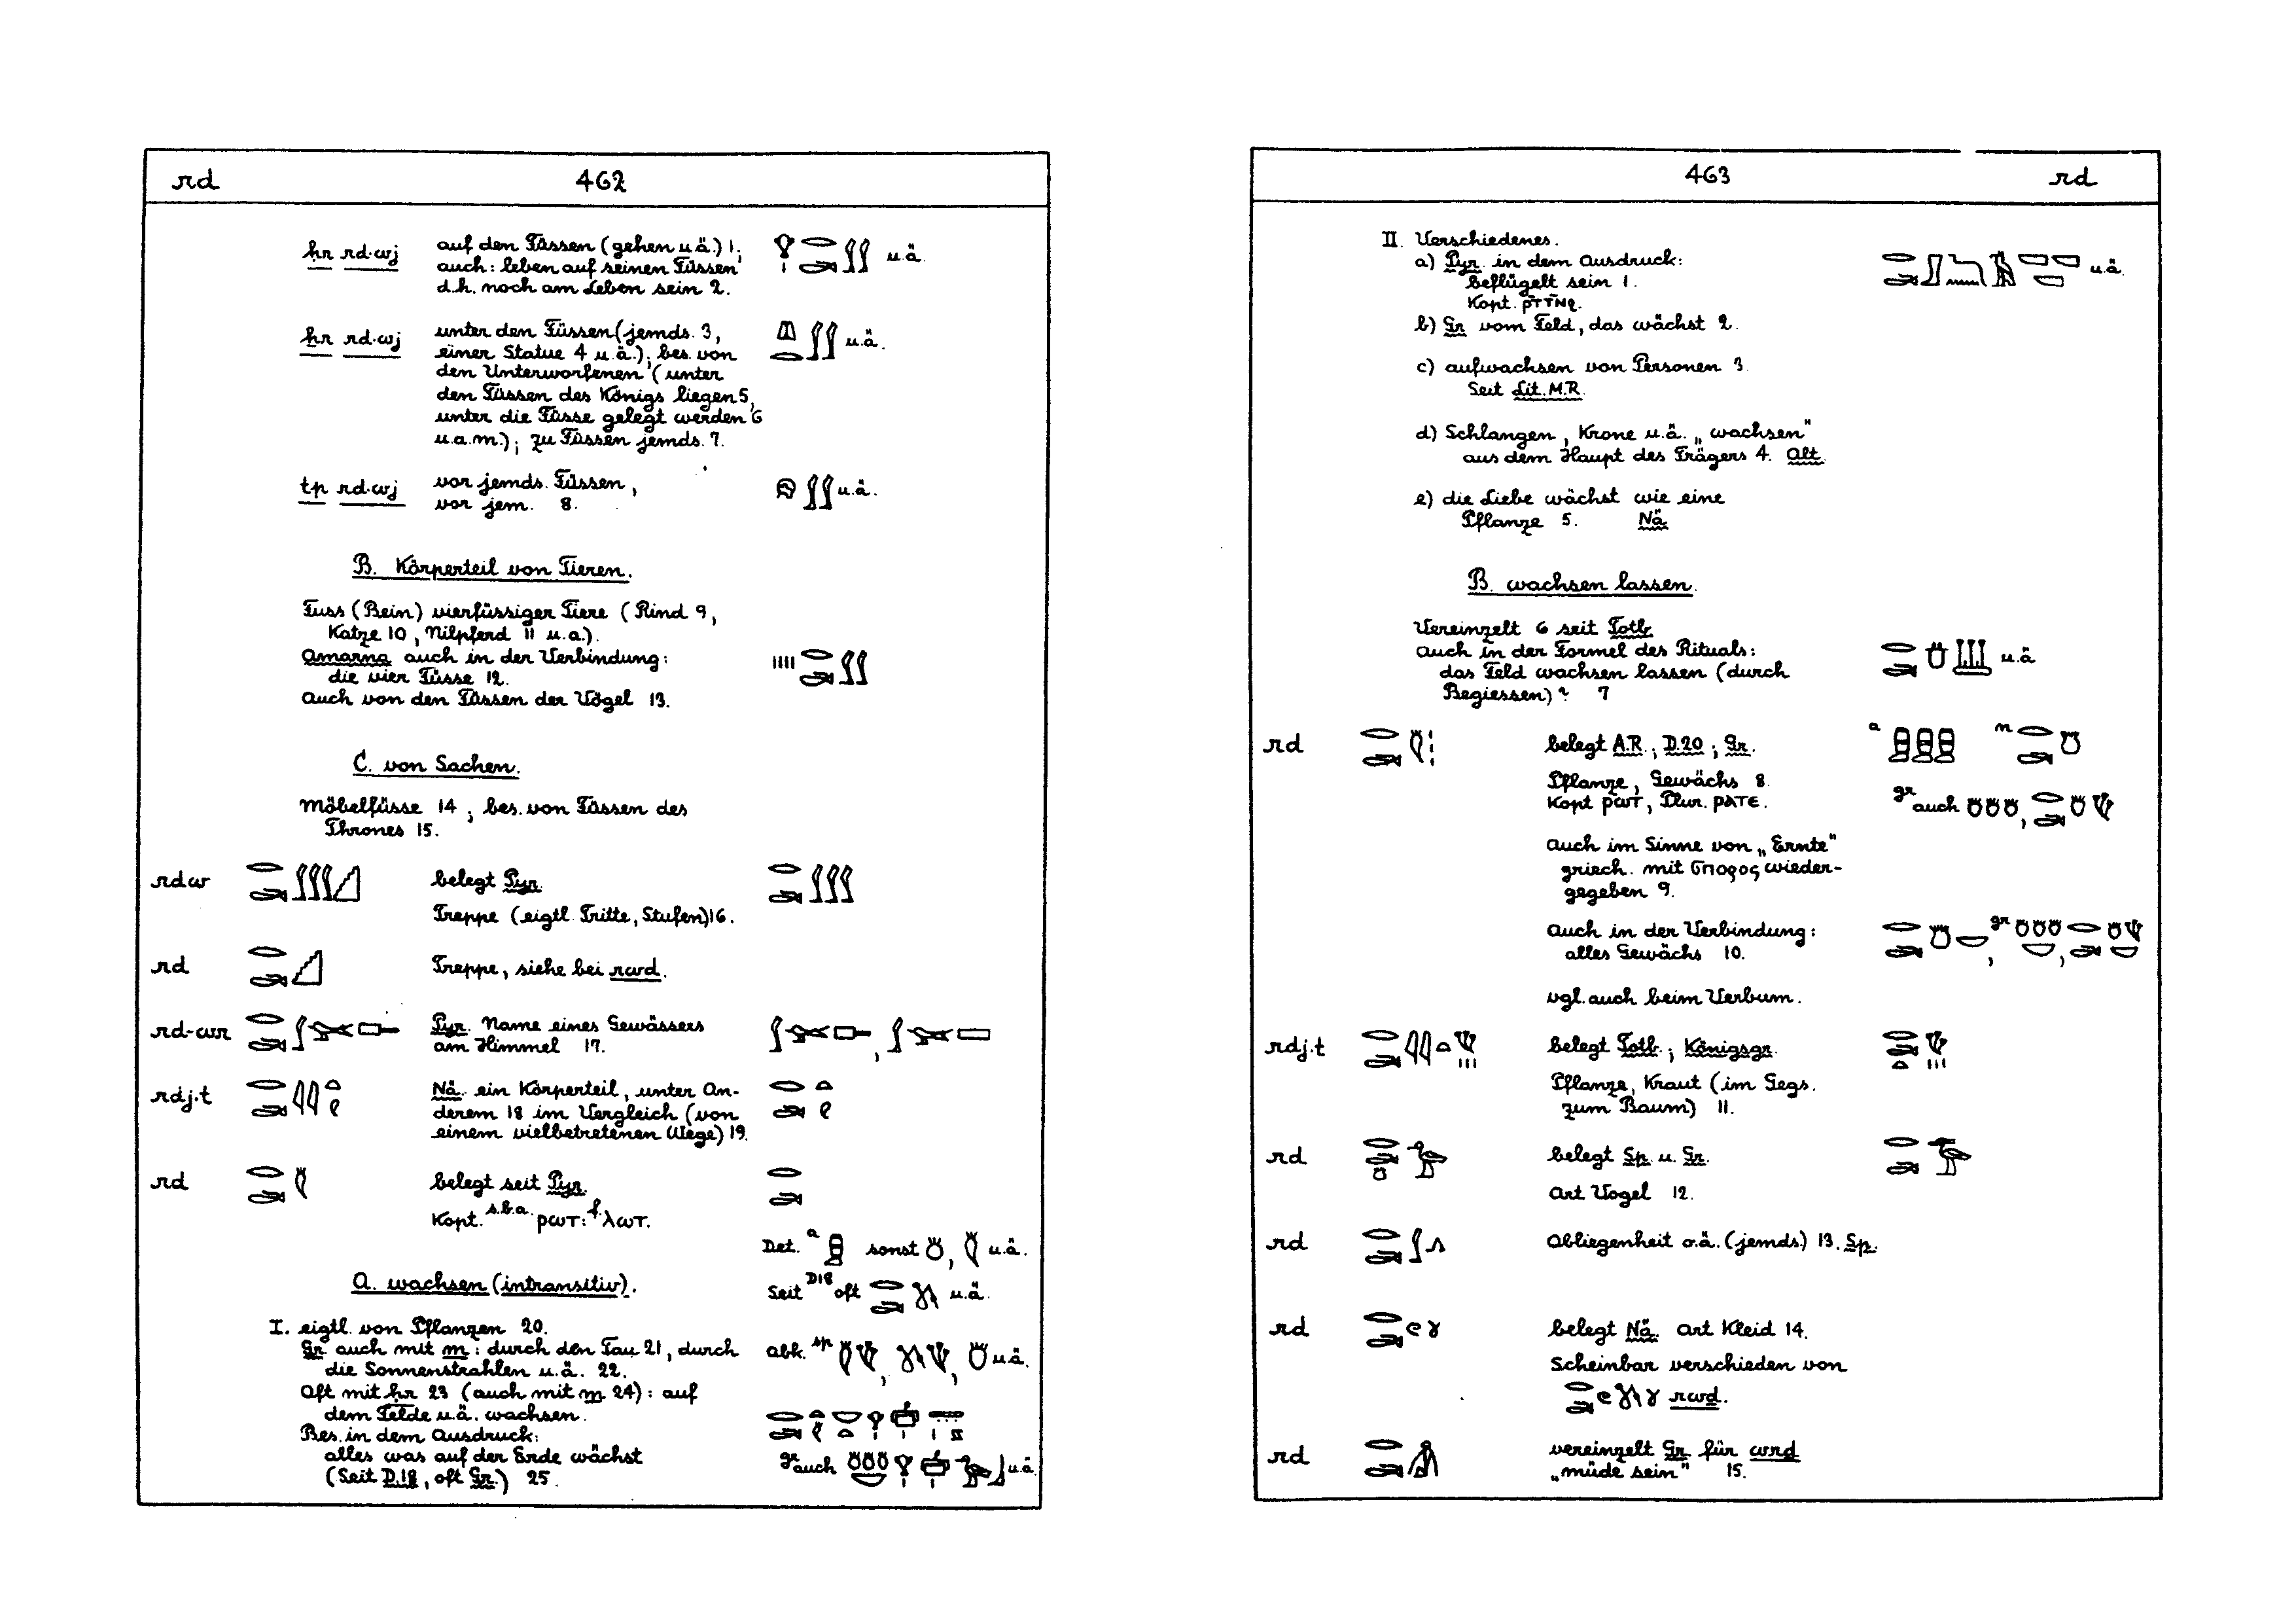 rd 462
ḥr rd·wj auf den Füssen (gehen u.ä.) 1;
auch: leben auf seinen Füssen
d.h. noch am Leben sein 2.
u.ä.
ẖr rd·wj unter den Füssen (jemds. 3,
einer Statue 4 u.ä.); bes. von
den Unterworfenen (unter
den Füssen des Königs liegen 5,
unter die Füsse gelegt werden 6
u.a.m.); zu Füssen jemds. 7.
u.ä.
tp rd·wj vor jemds. Füssen,
vor jem. 8.
u.ä.
B. Körperteil von Tieren.
Fuss (Bein) vierfüssiger Tiere (Rind 9,
Katze 10, Nilpferd 11 u.a.).
Amarna auch in der Verbindung:
die vier Füsse 12.
Auch von den Füssen der Vögel 13.
C. von Sachen.
Möbelfüsse 14, bes. von Füssen des
Thrones 15.
rdw belegt Pyr.
Treppe (eigtl. Tritte, Stufen) 16.
rd Treppe, siehe bei rwd.
rd-wr Pyr. Name eines Gewässers
am Himmel 17.
rdj.t Nä. ein Körperteil, unter An-
derem 18 im Vergleich (von
einem vielbetretenen Wege) 19.
rd belegt seit Pyr.
Kopt. s.b.a. ⲣⲱⲧ: f. ⲗⲱⲧ.
Det. a sonst , u.ä.
A. wachsen (intransitiv).
Seit D18 oft u.ä.
I. eigtl. von Pflanzen 20.
Gr. auch mit m: durch den Tau 21, durch
die Sonnenstrahlen u.ä. 22.
abk. sp , , u.ä.
Oft mit ḥr 23 (auch mit m 24): auf
dem Felde u.ä. wachsen.
Bes. in dem Ausdruck:
alles was auf der Erde wächst
(Seit D.18, oft Gr.) 25.
gr auch u.ä.
463 rd
II. Verschiedenes.
a) Pyr. in dem Ausdruck:
beflügelt sein 1.
Kopt.
u.ä.
b) Gr. vom Feld, das wächst 2.
c) aufwachsen von Personen 3.
Seit Lit. M.R.
d) Schlangen, Krone u.ä. „wachsen"
aus dem Haupt des Trägers 4. Alt.
e) die Liebe wächst wie eine
Pflanze 5. Nä
B. wachsen lassen.
Vereinzelt 6 seit Totb.
Auch in der Formel des Rituals:
das Feld wachsen lassen (durch
Begiessen)? 7
u.ä
rd belegt A.R.; D.20; Gr.
a n
Pflanze, Gewächs 8.
Kopt ⲣⲱⲧ, Plur. ⲣⲁⲧⲉ.
gr auch ,
auch im Sinne von „Ernte"
griech. mit σπορος wieder-
gegeben 9.
auch in der Verbindung:
alles Gewächs 10.
, gr ,
vgl. auch beim Verbum.
rdj.t belegt Totb.; Königsgr.
Pflanze, Kraut (im Gegs.
zum Baum) 11.
rd belegt Sp. u. Gr.
Art Vogel 12.
rd Obliegenheit o.ä. (jemds.) 13. Sp.
rd belegt Nä. Art Kleid 14.
Scheinbar verschieden von
rwḏ.
rd vereinzelt Gr. für wrd
„müde sein" 15.